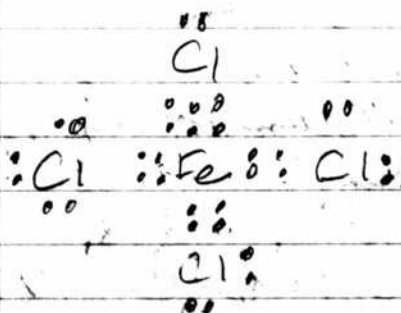 Cl
Cl Fe Cl
Cl